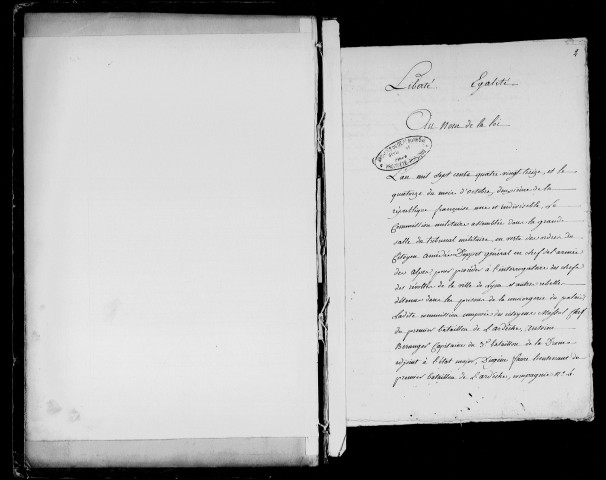 Liberté Egalité
Au Nom de la loi
L'an mil sept cents quatre vingt treize, et le
quatorze du mois d'octobre, deuxieme de la
république française une et indivisible, La
Commission militaire assemblée dans la grande
salle du tribunal militaire, en vertu des ordres du
Citoyen amédée Doppet général en chef de l'armée
des alpes, pour procéder à l'interrogatoire des chefs
des révoltés de la ville de Lyon et autres rebelles
détenus dans les prisons de la conciergerie du palais,
Ladite commission composée des citoyens chef
du premier bataillon de L'ardêche, antoine
Beranger Capitaine du 3e bataillon de la Drome
adjoint à l'état major, faure lieutenant du
premier bataillon de L'ardêche, compagnie No. 4